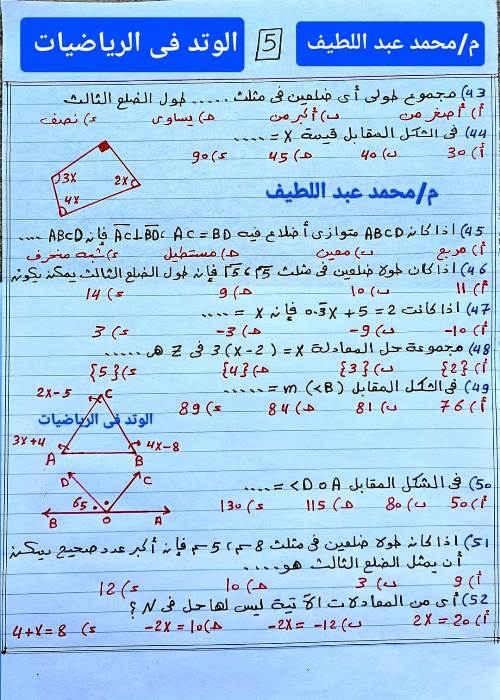 م/محمد عبد اللطيف 5 الوتد فى الرياضيات
43) مجموع طولى أى ضلعين فى مثلث ..... طول الضلع الثالث
أ) أصغر من ب) أكبر من حـ) يساوى د) نصف
44) فى الشكل المقابل قيمة X = ....
أ) 30 ب) 40 حـ) 45 د) 90
3X 2X
4X
م/محمد عبد اللطيف
45) اذا كان ABCD متوازى أضلاع فيه AC = BD ، AC ⊥ BD فإن ABCD ....
أ) مربع ب) معين حـ) مستطيل د) شبه منحرف
46) اذا كان طولا ضلعين فى مثلث 5سم ، 5سم فإن طول الضلع الثالث يمكن يكون
أ) 11 ب) 10 حـ) 9 د) 14
47) اذا كانت 0.3̇X + 5 = 2 فإن X = ....
أ) -10 ب) -9 حـ) -3 د) 3
48) مجموعة حل المعادلة 3(X-2) = X فى Z هى .....
أ) {2} ب) {3} حـ) {4} د) {5}
49) فى الشكل المقابل m(<B) = .....
أ) 76 ب) 81 حـ) 84 د) 89
2X-5 C
الوتد فى الرياضيات
3X+4 4X-8
A B
50) فى الشكل المقابل <DOA = ....
أ) 50 ب) 80 حـ) 115 د) 130
D C
65
B O A
51) اذا كان طولا ضلعين فى مثلث 8سم ، 5سم فإن أكبر عدد صحيح يمكن
أن يمثل الضلع الثالث هو ....
أ) 9 ب) 3 حـ) 10 د) 12
52) أى من المعادلات الآتية ليس لها حل فى N ؟
أ) 2X = 20 ب) -2X = -12 حـ) -2X = 10 د) 4+X=8